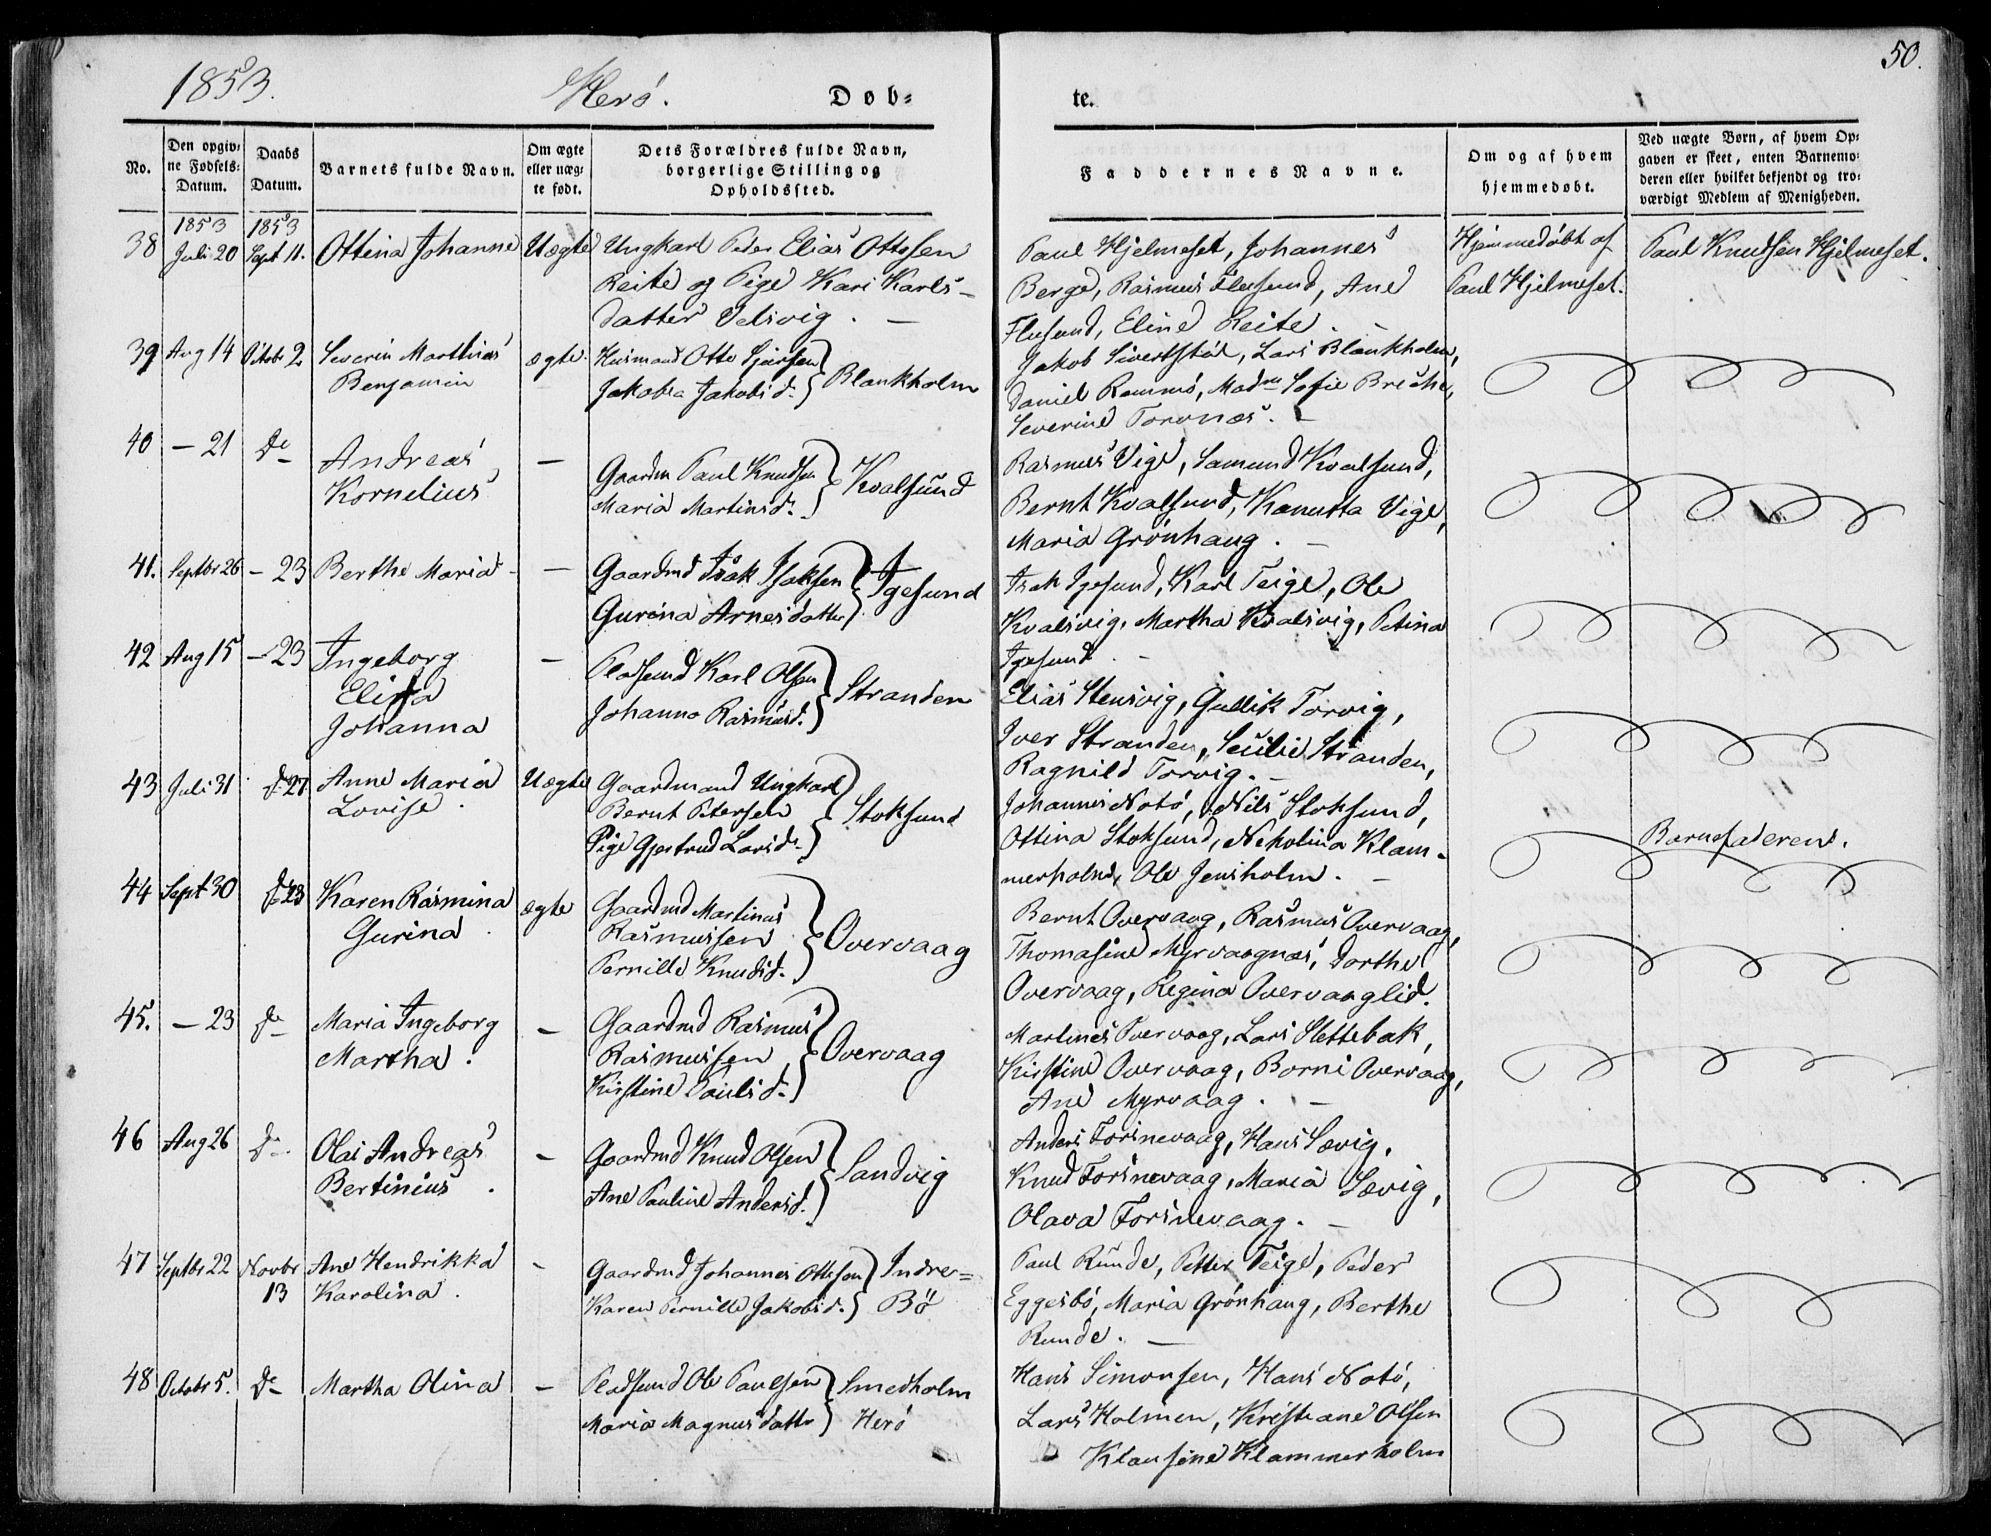 1853. Herö. Døb- te. 50.
No.
Den opgivne Fødsels-Datum.
Daabs Datum.
Barnets fulde Navn.
Om ægte eller uægte født.
Dets Forældres fulde Navn, borgerlige Stilling og Opholdssted.
Faddernes Navne.
Om og af hvem hjemmedøbt.
Ved uægte Børn, af hvem Opgaven er skeet, enten Barnemoderen eller hvilket bekjendt og troværdigt Medlem af Menigheden.
1853 1853
38 Juli 20 Sept 11. Ottina Johanne Uægte Ungkarl Peder Elias Ottosen
Reite og Pige Kari Karls-
datter Velsvig. —
Paul Hjelmeset, Johannes
Berge, Rasmus Flusund, Ane
Flusund, Eline Reite. —
Hjemmedøbt af
Paul Hjelmeset.
Paul Knudsen Hjelmeset.
39 Aug 14 Octobr 2 Severin Marthinus
Benjamin
ægte Husmand Otto
Jakobea Jakobsd. Blankholm
Jakob Sivertstøl, Lars Blankholm,
Daniel Remmø, Madm Sofie
Severine Torvnæs. —
40 — 21 Do Andreas
Kornelius
— Gaardm Paul Knudsen
Maria Martinsd. Kvalsund
Rasmus Vige, Samund Kvalsund,
Bernt Kvalsund, Kanutta Vige,
Maria Grønhaug. —
41. Septbr 26 - 23 Berthe Maria — Gaardmd Isak Isaksen
Gurina Arnesdatter Igesund
Isak Igesund, Karl Teige, Ole
Kvalsvig, Martha Kvalsvig, Petina
Igesund. -
42 Aug 15 - 23 Ingeborg
Elisa
Johanna
— Pladsmd Karl Olsen
Johanne Rasmusd. Stranden
Elias Stensvig, Gullik Torvig,
Iver Stranden, Secilie Stranden,
Ragnild Torvig. —
43 Juli 31 Anne Maria
Lovise.
Uægte Gaardmand Ungkarl
Bernt Petersen
Pige Gjertrud Larsd. Stoksund
Johannes Notø, Nils Stoksund,
Ottina Stoksund, Nekolina Klam-
merholm, Ole Jensholm. —
Barnefaderen.
44 Sept 30 Do 23 Karen Rasmina
Gurina.
ægte Gaardmd Martinus
Rasmussen
Pernille Knudsd. Overvaag
Bernt Overvaag, Rasmus Overvaag,
Thomasine Myrvaagnæs, Dorthe
Overvaag, Regina Overvaaglid.
45. — 23 Do Maria Ingeborg
Martha.
— Gaardmd Rasmus
Rasmussen
Kirstine Paulsd. Overvaag
Martines Overvaag, Lars Slettebak,
Kirstine Overvaag, Borni Overvaag,
Ane Myrvaag. —
46 Aug 26 Do Olai Andreas
Bertinius.
— Gaardmd Knud Olsen
Ane Pauline Andersd. Sandvig
Anders Torinevaag, Hans Sævig,
Knud Torinevaag, Maria Sævig,
Olava Torinevaag. —
47 Septbr 22 Novbr
13
Ane Hendrikka
Karolina.
- Gaardmd Johannes Ottesen
Karen Pernille Jakobsd. Indre-
Bö
Paul Runde, Petter Teige, Peder
Eggesbö, Maria Grønhaug, Berthe
Runde. —
48 Octobr 5. Do Martha Olina — Pladsmd Ole Paulsen
Maria Magnusdatter Smedholm
Herö
Hans Simonsen, Hans Notø,
Lars Holmen, Kristiane Olsen
Klausine Klammerholm